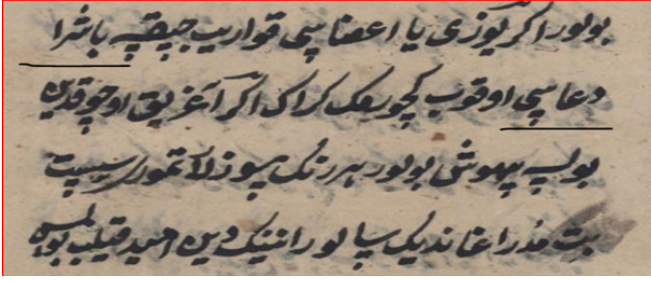 بولور اکر یوزی یا اعضاسی قواریب جیقیه باشرا
دعاسی اوقوب کچورمک کراک اکر آغریق اوجوقدین
بولسه بیهوشی بولور هر رنک سوزلا
بیت اغاندیک سالور انینک دین امید قیلیب بولمس